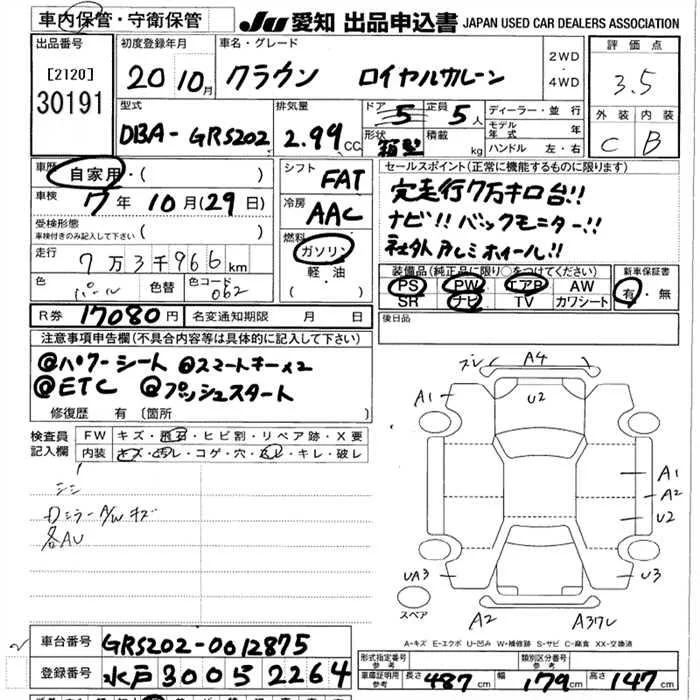 車内保管・守衛保管
JU 愛知 出品申込書 JAPAN USED CAR DEALERS ASSOCIATION
出品番号
[2120]
30191
初度登録年月
20 10月
車名・グレード
クラウン ロイヤルサルーン
2WD
・
4WD
評価点
3.5
外装 内装
C B
型式
DBA-GRS202
排気量
2.99 CC
ドア 5
形状 箱型
定員 5人
積載 kg
ディーラー・並行
モデル年式 年
ハンドル 左・右
車歴 自家用・( )
車検 7年10月(29日)
受検形態
車検付きのみ記入して下さい ( )
走行 7万3千966km
色 パール
色替
色コード 062
シフト
FAT
冷房
AAC
燃料
ガソリン
・
軽油
( )
セールスポイント(正常に機能するものに限ります)
完走行7万キロ台!!
ナビ!! バックモニター!!
社外アルミホイール!!
装備品(純正品に限り○をつけてください)
PS PW エアB AW
SR ナビ TV カワシート
新車保証書
有・無
R券 17080円
名変通知期限 月 日
後日品
注意事項申告欄(不具合内容等は具体的に記入して下さい)
@パワーシート @スマートキーx2
@ETC @プッシュスタート
修復歴 有 〔箇所 〕
検査員記入欄
FW キズ・飛石・ヒビ割・リペア跡・X要
内装 キズ・汚レ・コゲ・穴・キレ・破レ
Dミラー A/W キズ
各AU
A4
U2
A1
A1
A2
U2
UA3
U3
スペア
A2
A-キズ E-エクボ U-凹み W-補修跡 S-サビ C-腐食 XX-交換済
車台番号 GRS202-0012875
登録番号 水戸 300 ら 2264
形式指定番号
参考
類別区分番号
参考
車庫証明用
参考
長さ 487cm
幅 179cm
高さ 147cm